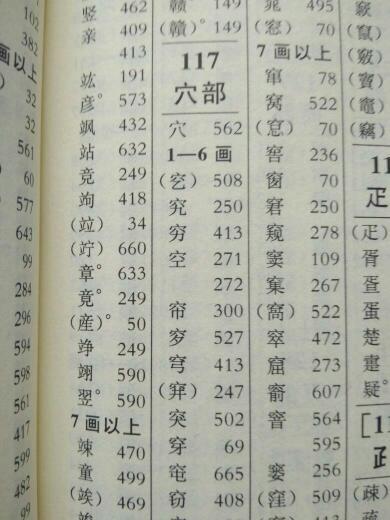 102
382
画以上
32
32
561
60
577
643
99
284
296
594
598
561
417
599
482
99
竖 462
亲 409
413
竑 191
彦° 573
飒 432
站 632
竞 249
竘 418
(竝) 34
(竚) 660
章° 633
竟° 249
(産)° 50
竫 249
翊 590
翌° 590
7画以上
竦 470
童 499
(竢) 469
竣
赣 149
(贛)° 149
117
穴部
穴 562
1—6 画
(穵) 508
究 250
穷 413
空 271
272
帘 300
穸 527
穹 413
(穽) 247
突 502
穿 69
窀 665
窃 408
窕 495
(窓) 70
7 画以上
窜 78
窝 522
(窻) 70
窖 236
窗 70
窘 250
窥 278
窦 109
窠 267
(窩) 522
窣 472
窟 273
窬 607
窨 564
595
窭 256
(窪) 509
413
窾
(竄)
(竅)
(竇)
(竈)
(竊)
11
疋
(疋)
胥
疍
蛋
楚
疐
疑°
[11
(疎)
疏